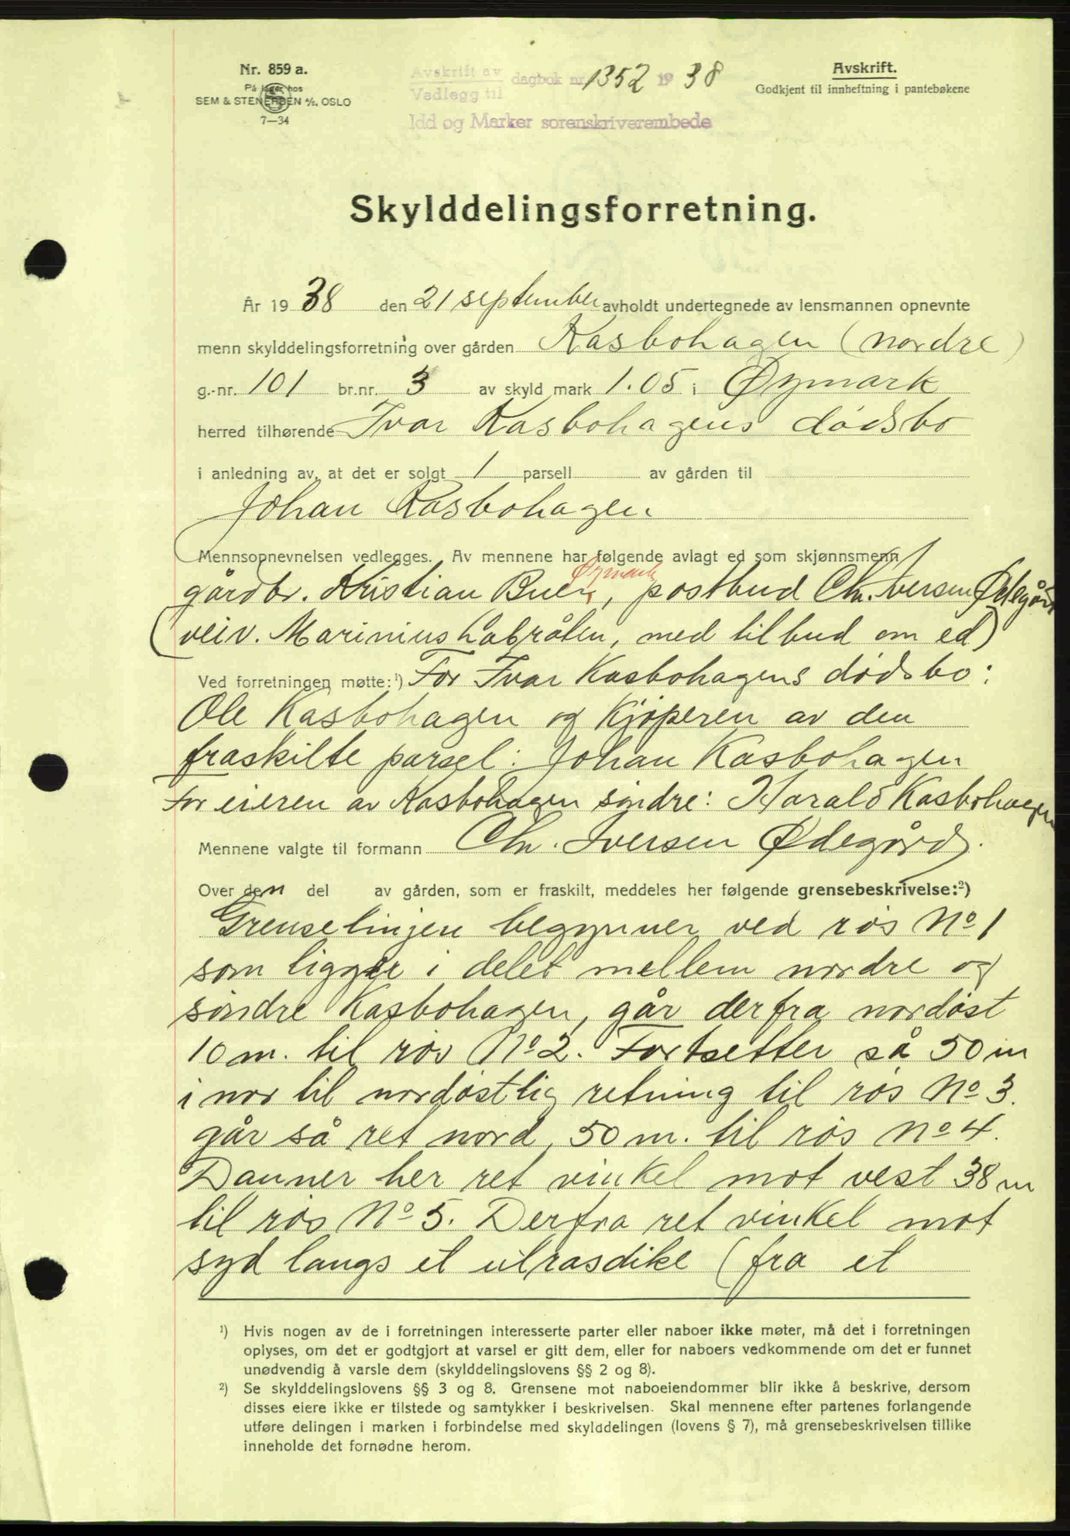 Nr. 859 a.
På lager hos
SEM & STENERSEN A/S, OSLO
7—34
Avskrift av
Vedlegg til dagbok nr. 1352 1938
Idd og Marker sorenskriverembede
Avskrift.
Godkjent til innheftning i pantebøkene
Skylddelingsforretning.
År 19 38 den 21 september avholdt undertegnede av lensmannen opnevnte
menn skylddelingsforretning over gården Kasbohagen (nordre)
g.-nr. 101 br.nr. 3 av skyld mark 1.05 i Øymark
herred tilhørende Ivar Kasbohagens dødsbo
i anledning av, at det er solgt 1 parsell av gården til
Johan Kasbohagen
Mennsopnevnelsen vedlegges. Av mennene har følgende avlagt ed som skjønnsmenn
Øymark
gårdbr. Kristian Buer, postbud Chr. Iversen Ødegård
(veiv. Marinius Labråten, med tilbud om ed)
Ved forretningen møtte:¹) For Ivar Kasbohagens dødsbo:
Ole Kasbohagen og kjøperen av den
fraskilte parsel: Johan Kasbohagen
For eieren av Kasbohagen søndre: Harald Kasbohagen
Mennene valgte til formann Chr. Iversen Ødegård.
Over den del av gården, som er fraskilt, meddeles her følgende grensebeskrivelse:²)
Grenselinjen begynner ved røs No 1
som ligger i delet mellem nordre og
søndre Kasbohagen, går derfra nordøst
10 m. til røs No 2. Fortsetter så 50 m
i nor til nordøstlig retning til røs No 3.
går så ret nord, 50 m. til røs No 4.
Danner her ret vinkel mot vest 38 m
til røs No 5. Derfra ret vinkel mot
syd langs et utrasdike (fra et
¹) Hvis nogen av de i forretningen interesserte parter eller naboer ikke møter, må det i forretningen
oplyses, om det er godtgjort at varsel er gitt dem, eller for naboers vedkommende om det er funnet
unødvendig å varsle dem (skylddelingslovens §§ 2 og 8).
²) Se skylddelingslovens §§ 3 og 8. Grensene mot naboeiendommer blir ikke å beskrive, dersom
disses eiere ikke er tilstede og samtykker i beskrivelsen. Skal mennene efter partenes forlangende
utføre delingen i marken i forbindelse med skylddelingen (lovens § 7), må grensebeskrivelsen tillike
inneholde det fornødne herom.